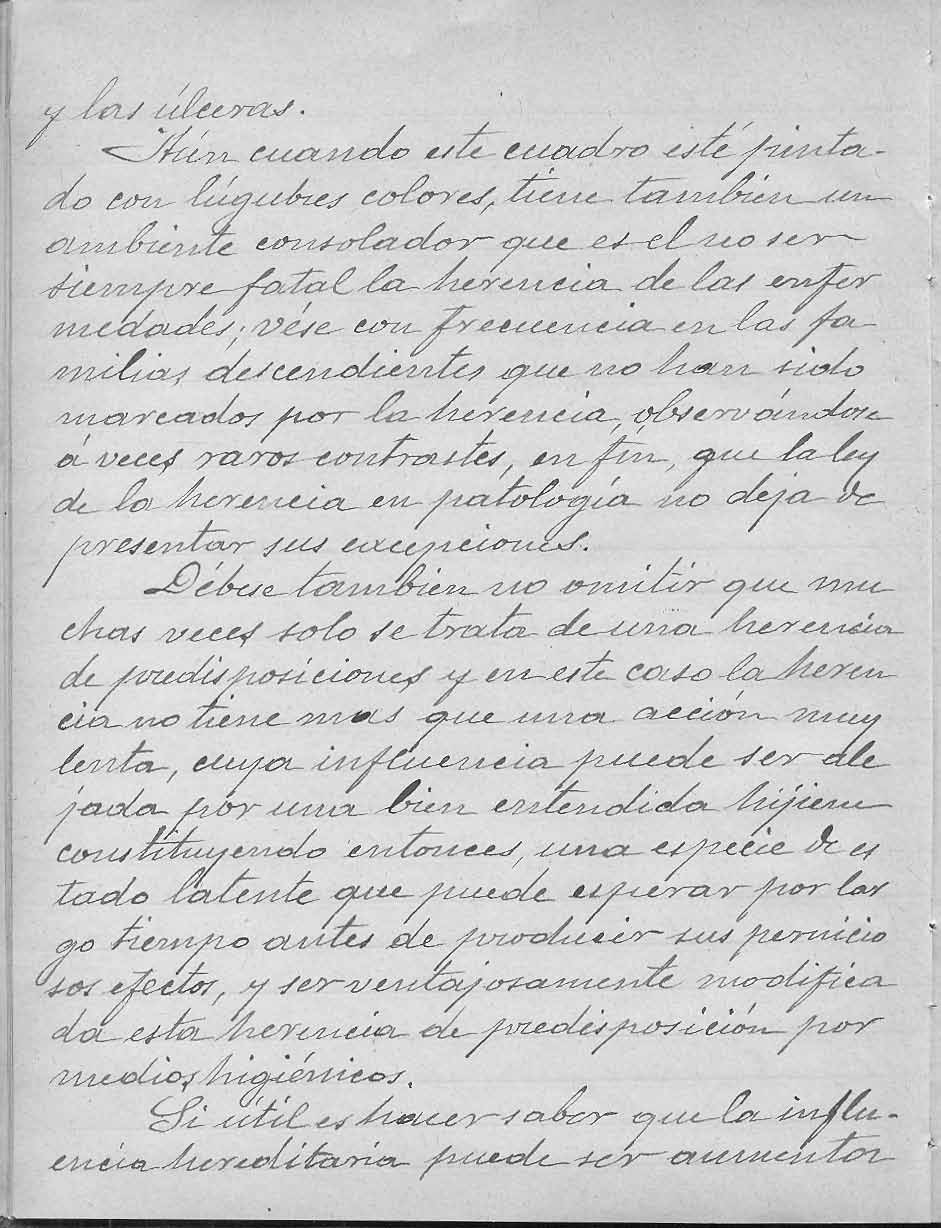 y las úlceras.
Aún cuando este cuadro esté pinta-
do con lúgubres colores, tiene tambien un
ambiente consolador que es el no ser
siempre fatal la herencia de las enfer
medades; vése con frecuencia en las fa
milias, descendientes que no han sido
marcados por la herencia, observándose
á veces raros contrastes, en fín, que la ley
de la herencia en patología no deja de
presentar sus excepciones.
Débese tambien no omitir que mu
chas veces solo se trata de una herencia
de predisposiciones y en este caso la heren
cia no tiene mas que una acción muy
lenta, cuya influencia puede ser ale
jada por una bien entendida hijiene
constituyendo entonces, una especie de es
tado latente que puede esperar por lar
go tiempo antes de producir sus pernicio
sos efectos, y ser ventajosamente modifica
da esta herencia de predisposición por
medios higiénicos.
Si útil es hacer saber que la influ-
encia hereditaria puede ser aumentar